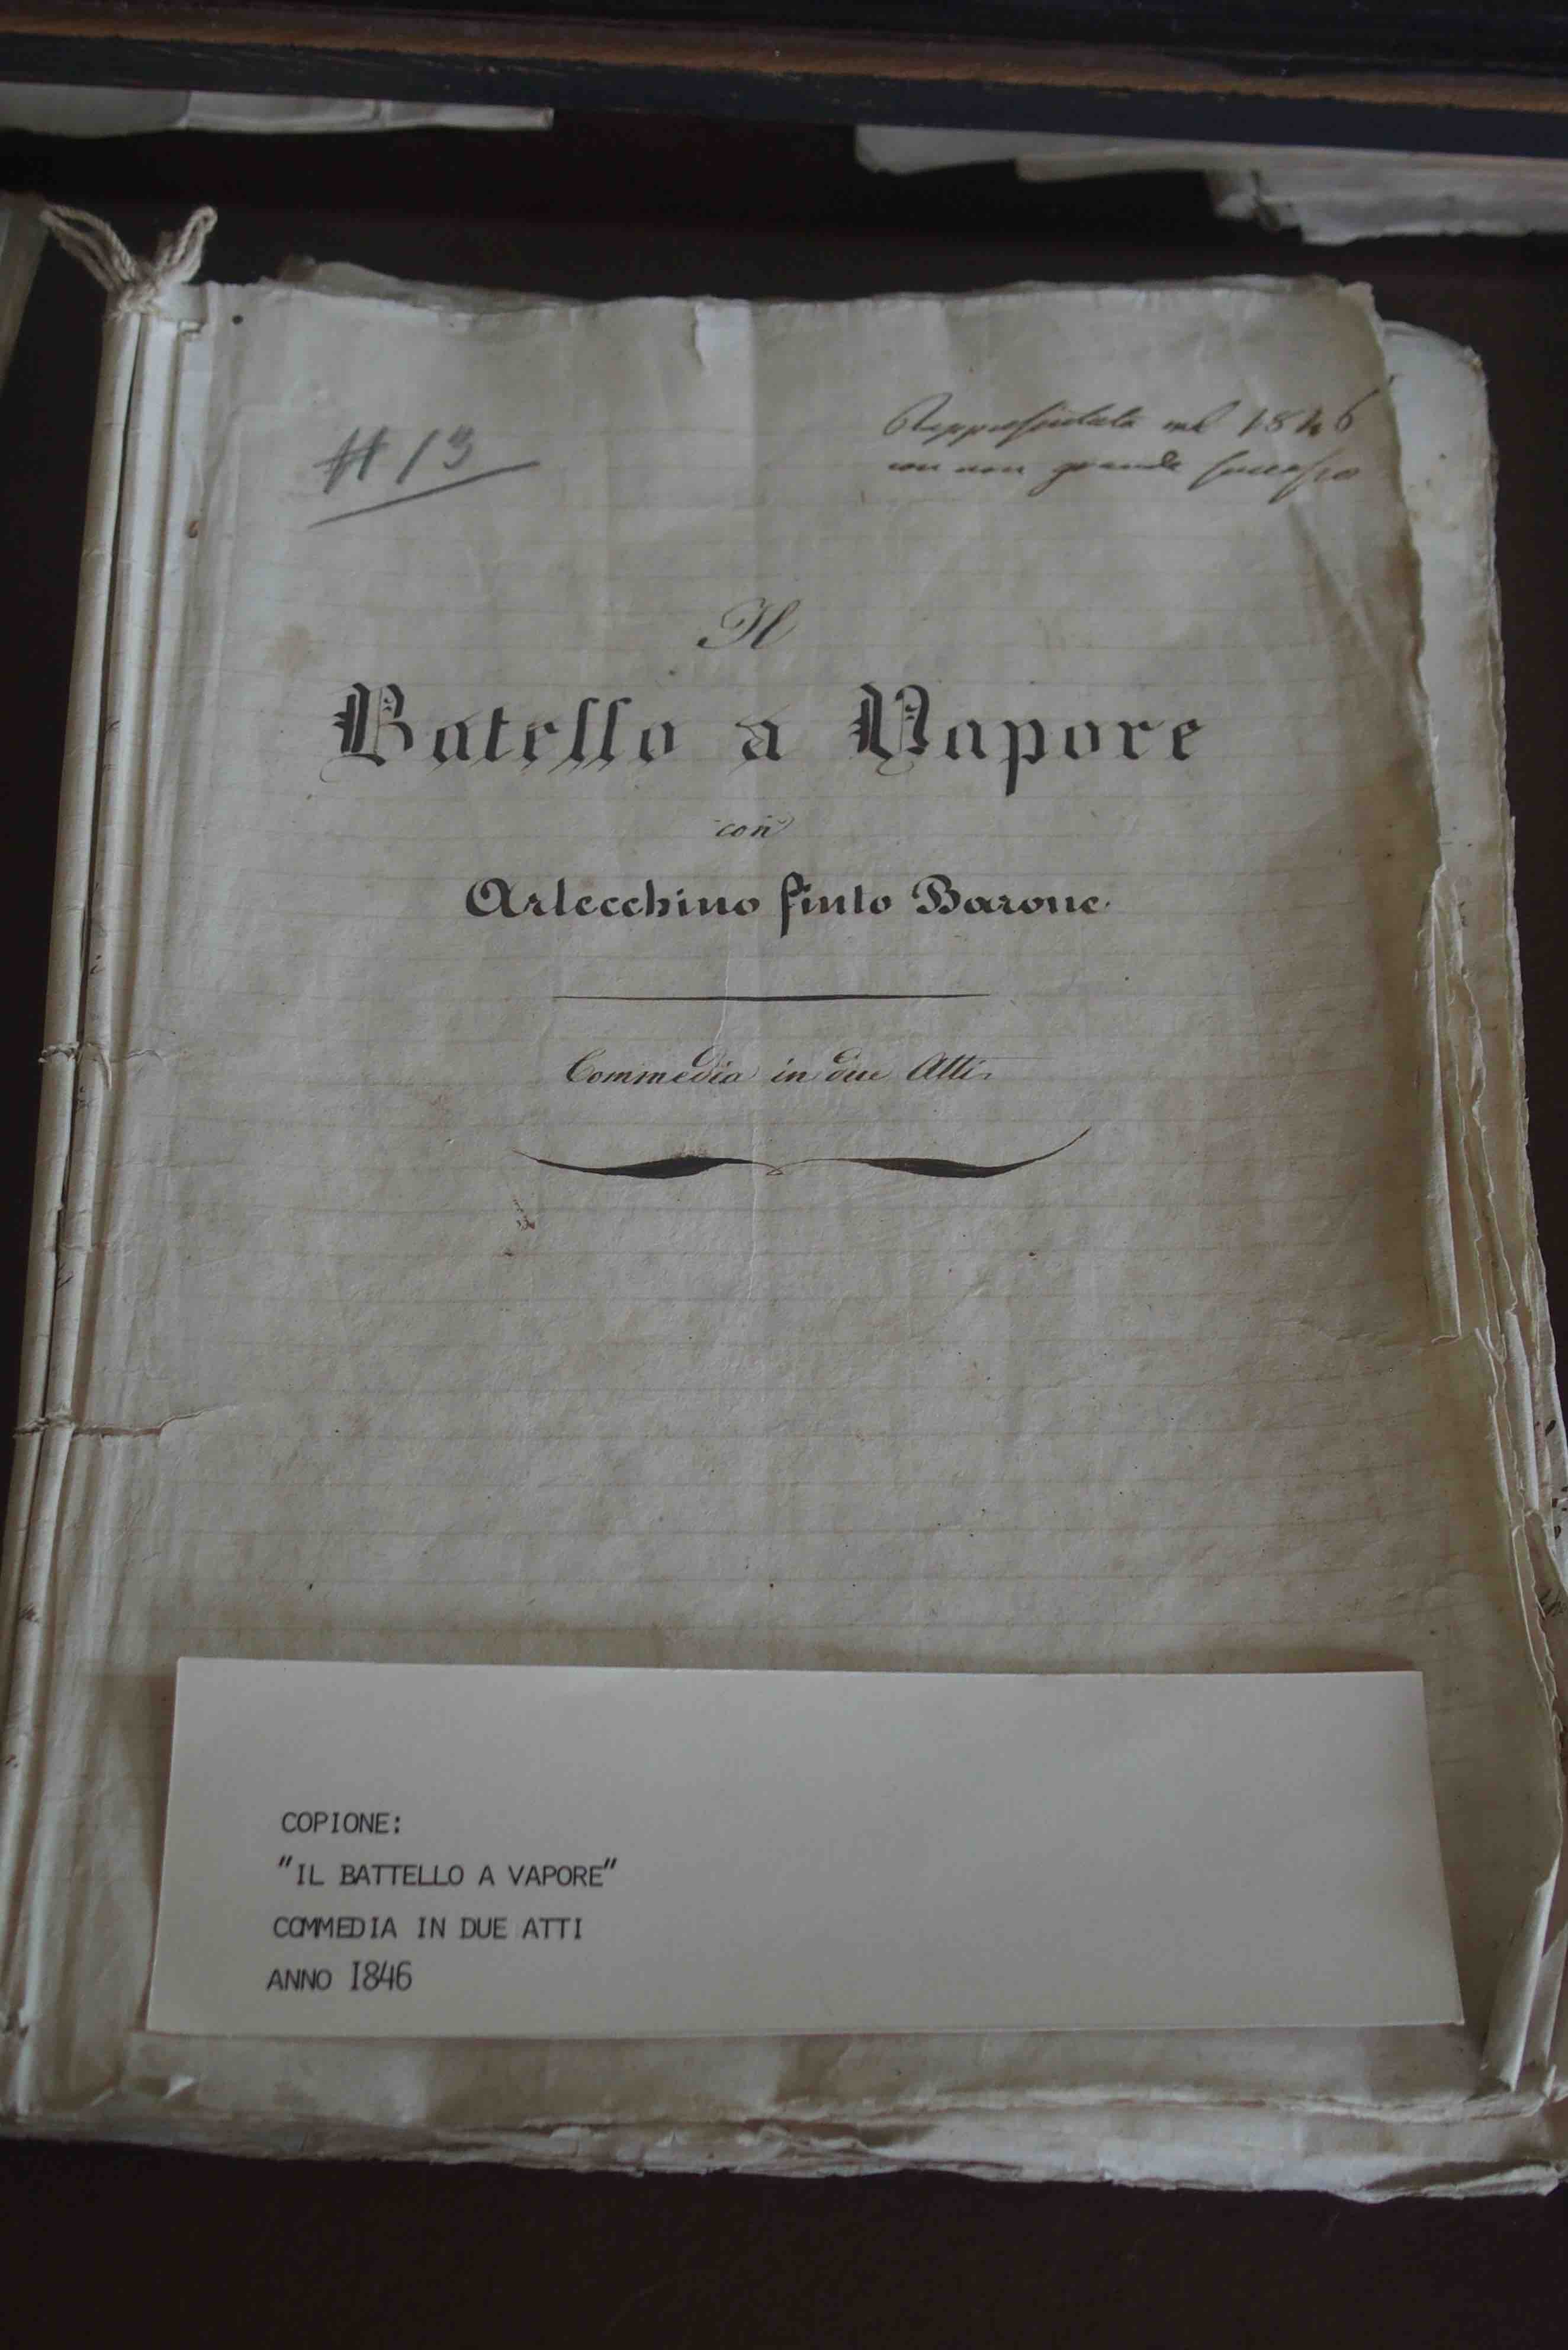 # 13
Rappresentata nel 1846
con non grande successo
Il
Batello a Vapore
con
Arlecchino finto Barone.
Commedia in due Atti.
COPIONE:
"IL BATTELLO A VAPORE"
COMMEDIA IN DUE ATTI
ANNO 1846